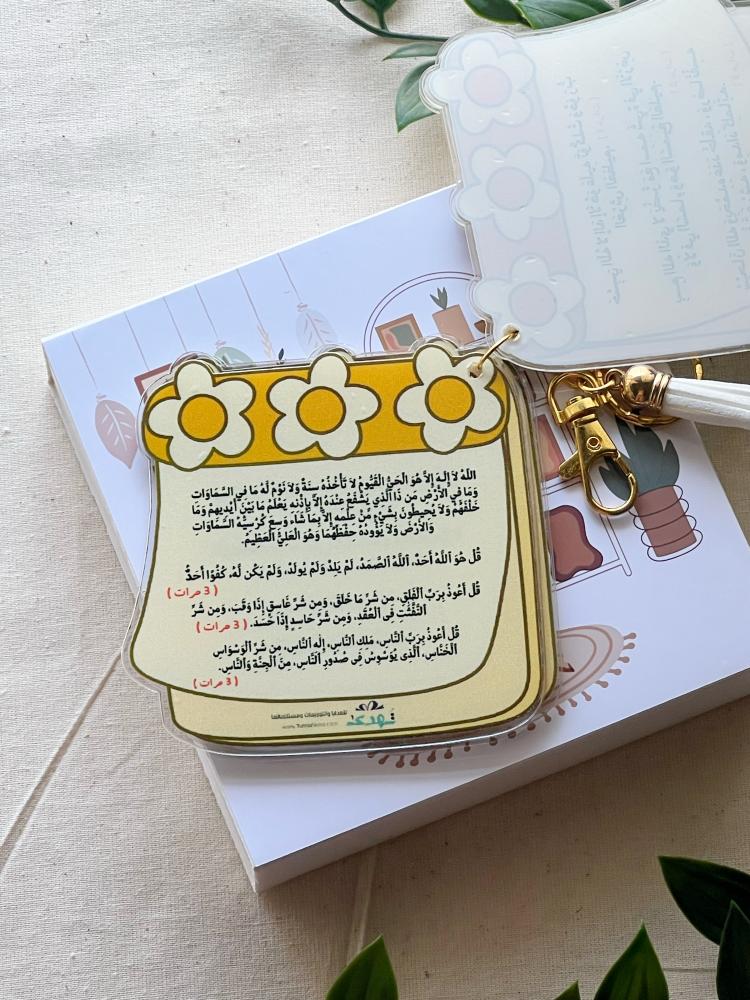 اللّهُ لاَ إِلَـهَ إِلاَّ هُوَ الْحَيُّ الْقَيُّومُ لاَ تَأْخُذُهُ سِنَةٌ وَلاَ نَوْمٌ لَّهُ مَا فِي السَّمَاوَاتِ
وَمَا فِي الأَرْضِ مَن ذَا الَّذِي يَشْفَعُ عِنْدَهُ إِلاَّ بِإِذْنِهِ يَعْلَمُ مَا بَيْنَ أَيْدِيهِمْ وَمَا
خَلْفَهُمْ وَلاَ يُحِيطُونَ بِشَيْءٍ مِّنْ عِلْمِهِ إِلاَّ بِمَا شَاء وَسِعَ كُرْسِيُّهُ السَّمَاوَاتِ
وَالأَرْضَ وَلاَ يَؤُودُهُ حِفْظُهُمَا وَهُوَ الْعَلِيُّ الْعَظِيمُ.
قُلْ هُوَ ٱللَّهُ أَحَدٌ، ٱللَّهُ ٱلصَّمَدُ، لَمْ يَلِدْ وَلَمْ يُولَدْ، وَلَمْ يَكُن لَّهُ، كُفُوًا أَحَدٌ
( 3 مرات )
قُلْ أَعُوذُ بِرَبِّ ٱلْفَلَقِ، مِن شَرِّ مَا خَلَقَ، وَمِن شَرِّ غَاسِقٍ إِذَا وَقَبَ، وَمِن شَرِّ
ٱلنَّفَّٰثَٰتِ فِى ٱلْعُقَدِ، وَمِن شَرِّ حَاسِدٍ إِذَا حَسَدَ. ( 3 مرات )
قُلْ أَعُوذُ بِرَبِّ ٱلنَّاسِ، مَلِكِ ٱلنَّاسِ، إِلَٰهِ ٱلنَّاسِ، مِن شَرِّ ٱلْوَسْوَاسِ
ٱلْخَنَّاسِ، ٱلَّذِى يُوَسْوِسُ فِى صُدُورِ ٱلنَّاسِ، مِنَ ٱلْجِنَّةِ وَٱلنَّاسِ.
( 3 مرات )
للهدايا والتوزيعات ومستلزماتها